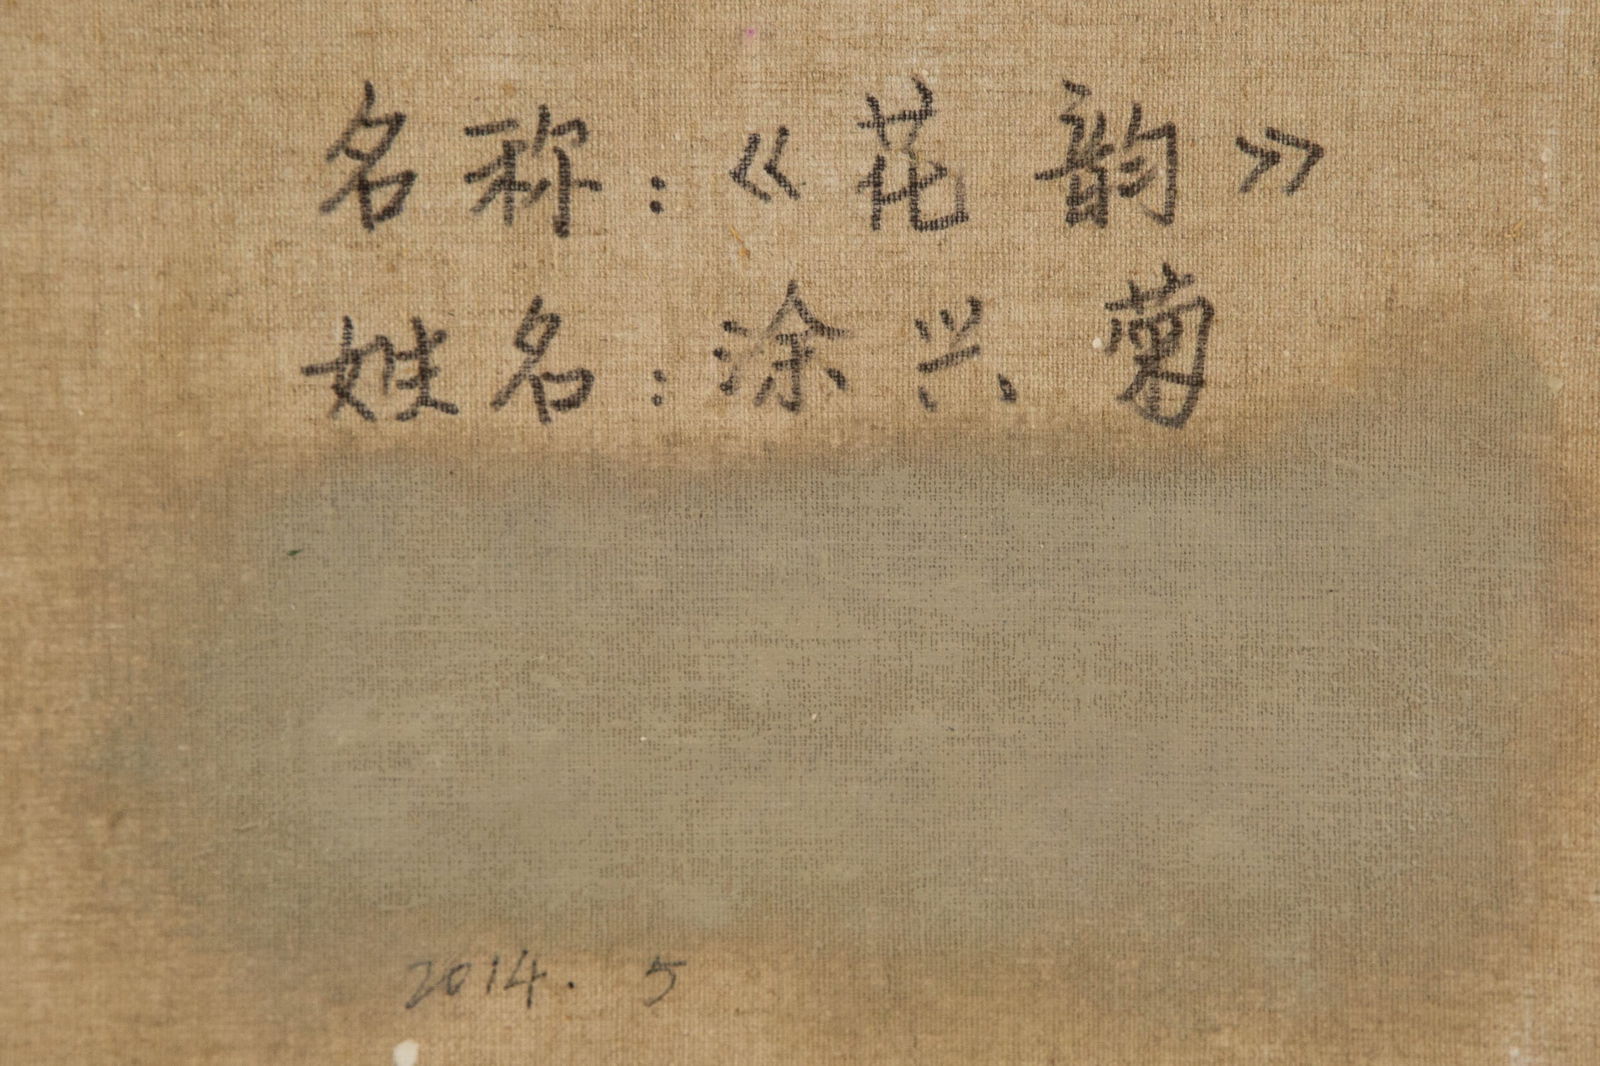 名称：《花韵》
姓名：涂兴菊
2014. 5